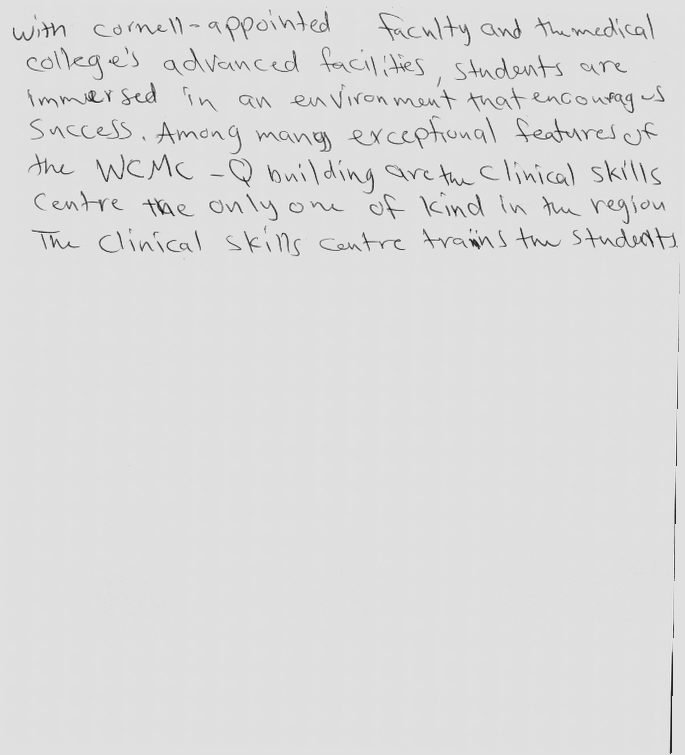 with cornell-appointed faculty and the medical
college's advanced facilities, students are
immersed in an environment that encourages
Success. Among many exceptional features of
the WCMC-Q building are the Clinical skills
Centre the only one of kind in the region
The Clinical skills centre trains the students